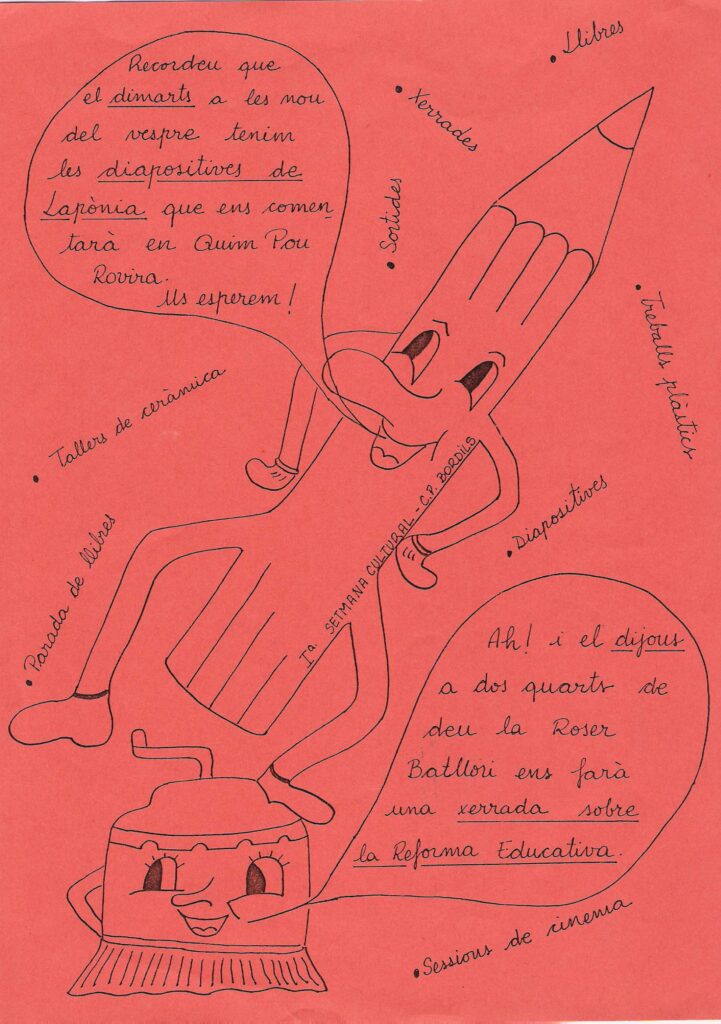 Recordeu que
el dimarts a les nou
del vespre tenim
les diapositives de
Lapònia que ens comen
tarà en Quim Pou
Rovira.
Us esperem!
• Llibres
• Xerrades
• Sortides
• Treballs plàstics
• Tallers de ceràmica
• Diapositives
• Parada de llibres
Iª. SETMANA CULTURAL.- C.P. BORDILS
Ah! i el dijous
a dos quarts de
deu la Roser
Batllori ens farà
una xerrada sobre
la Reforma Educativa.
• Sessions de cinema